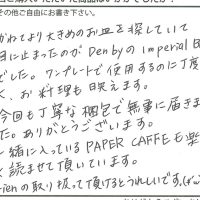 その他ご自由にお書き下さい。
かねてより大きめのお皿を探していて
目に止まったのがDenbyのimperial
でした。ワンプレートで使用するのに丁度
く、お料理も映えます。
今回も丁寧な梱包で無事に届きま
た。ありがとうございます。
一緒に入っているPAPER CAFFEも楽
く読ませて頂いています。
rienの取り扱って頂けるとうれしいです。